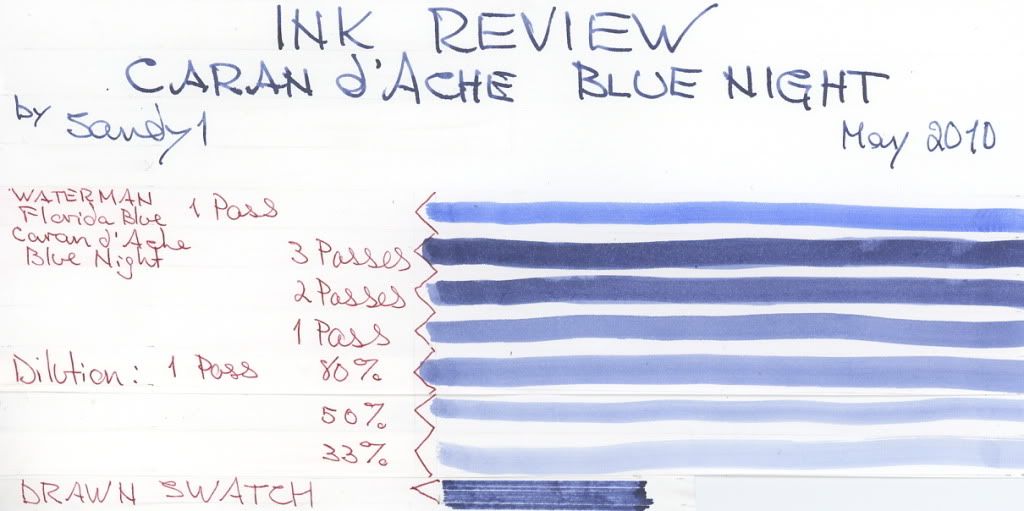 INK REVIEW
CARAN d'ACHE BLUE NIGHT
by Sandy1
May 2010
WATERMAN
Florida Blue 1 Pass
Caran d'Ache
Blue Night 3 Passes
2 Passes
1 Pass
Dilution: 1 Pass 80%
50%
33%
DRAWN SWATCH